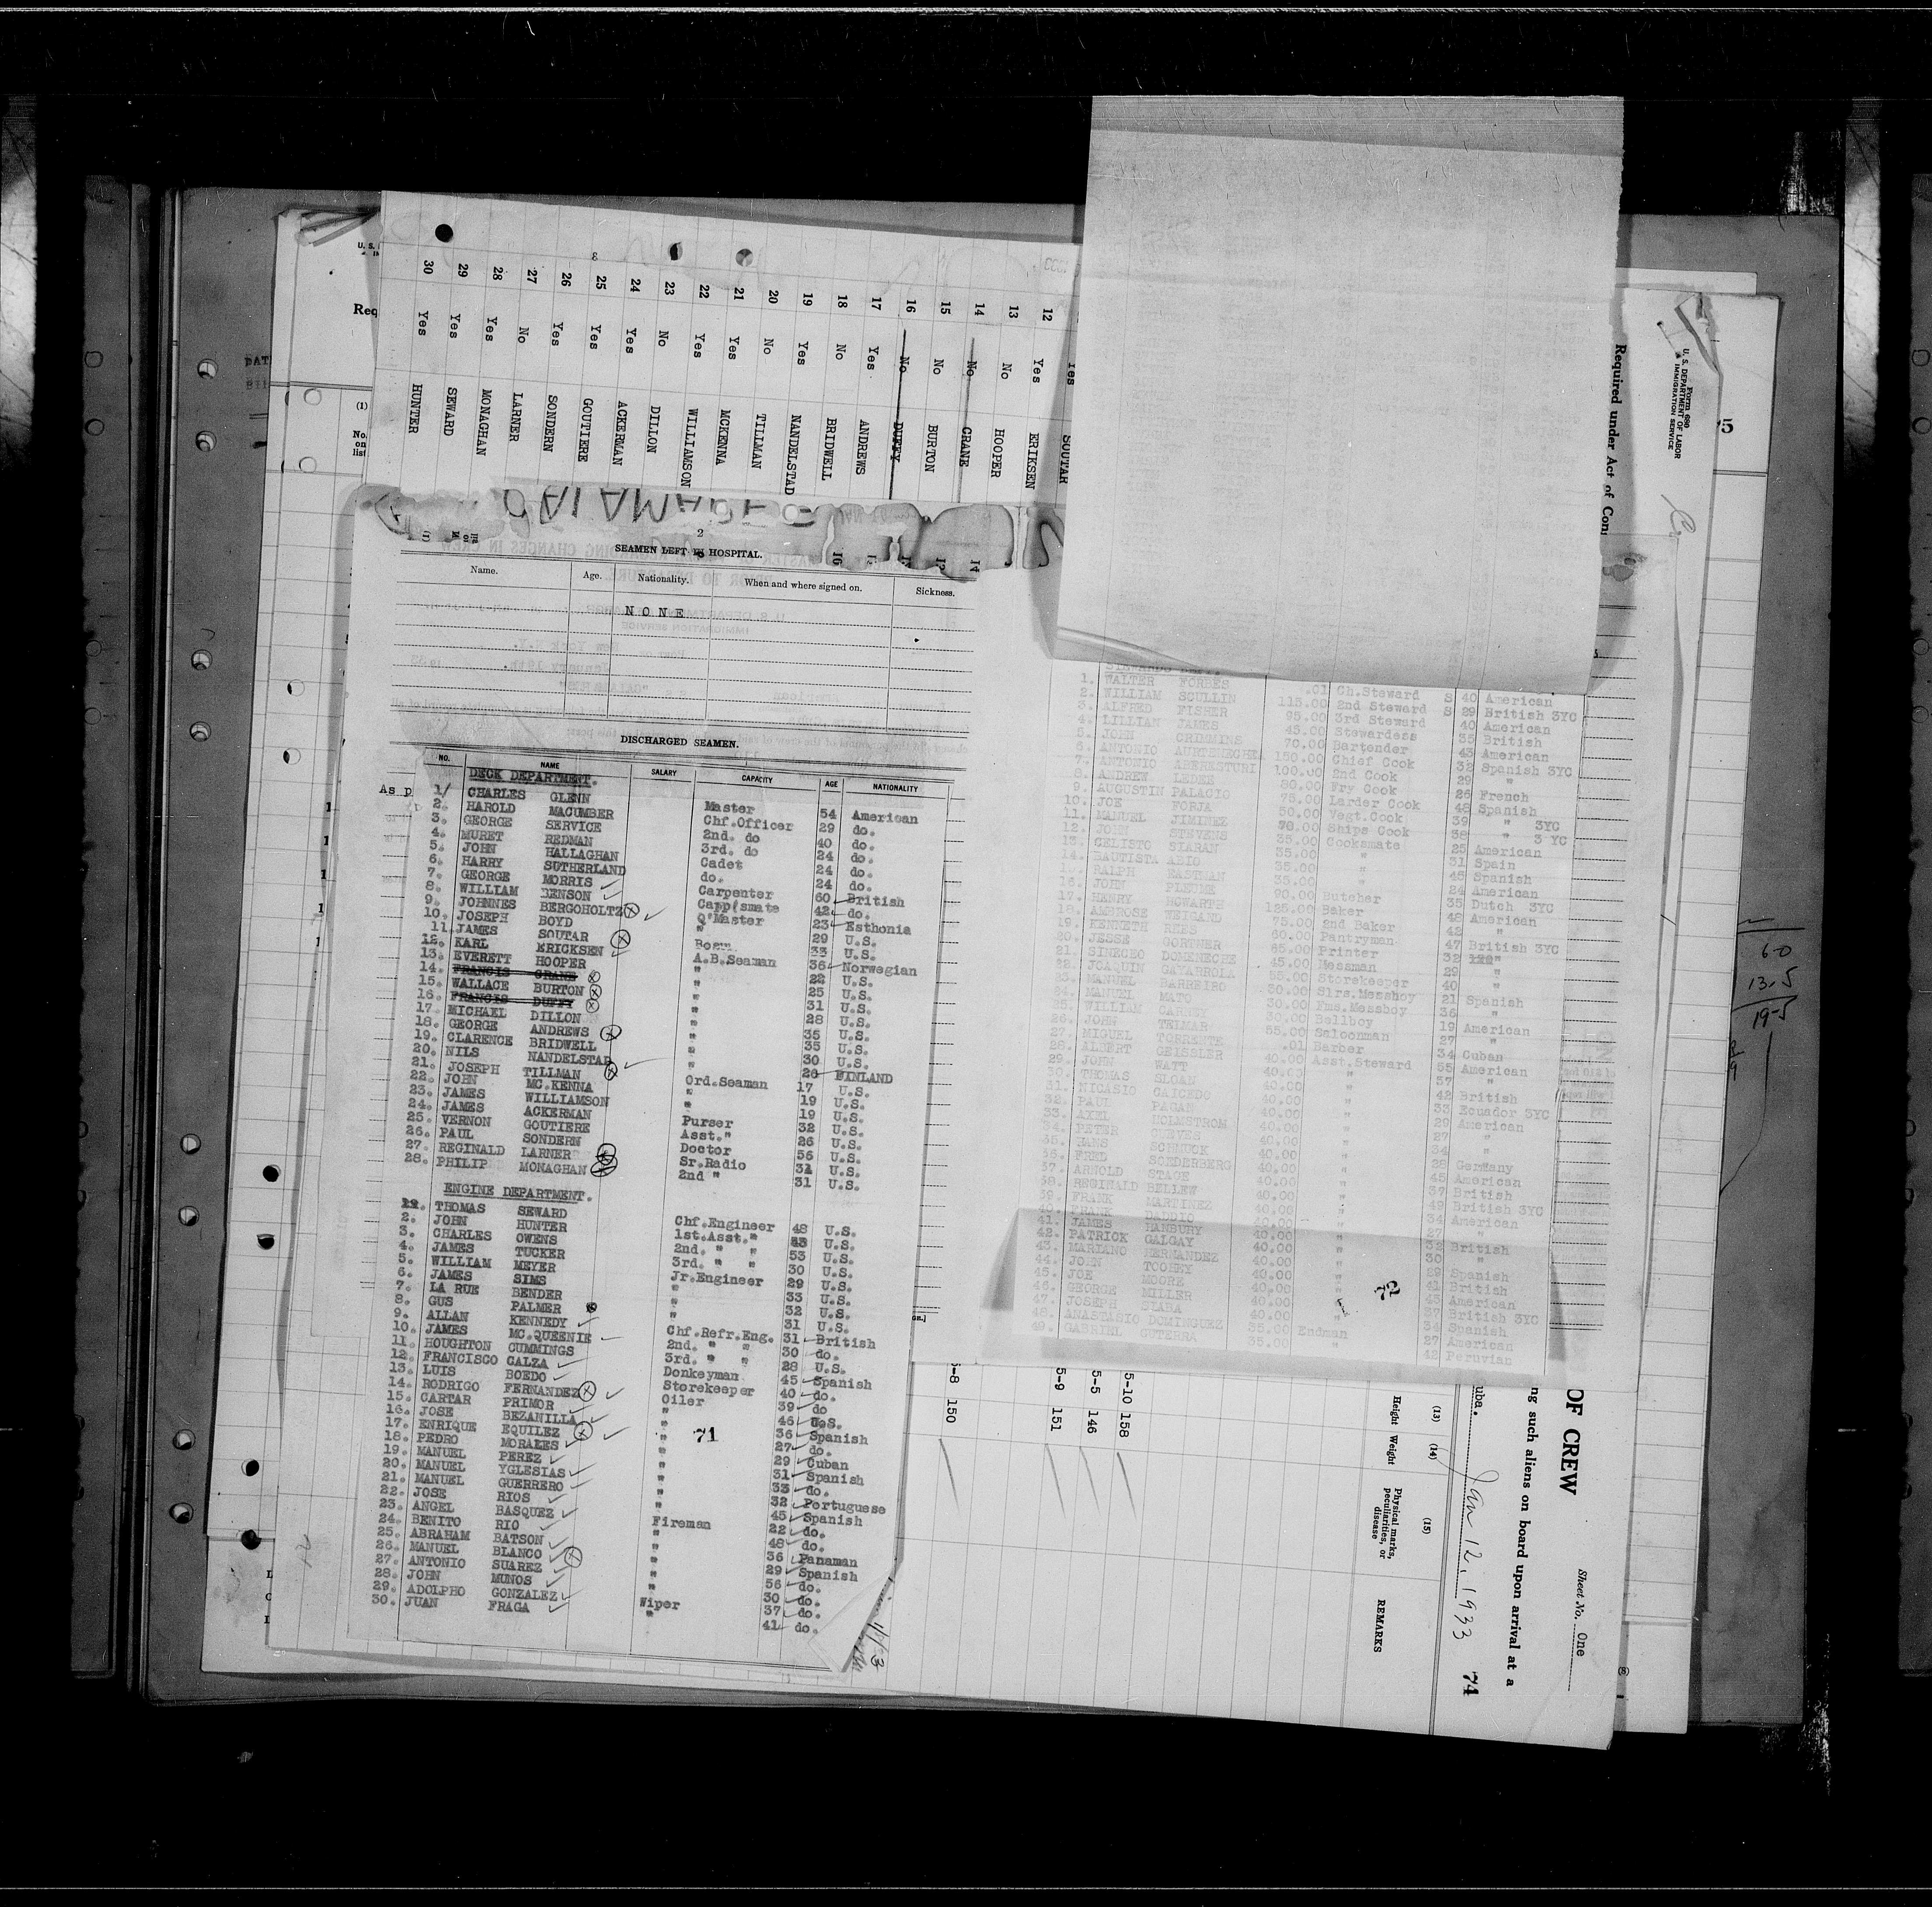 30 Yes HUNTER
29 Yes SEWARD
28 Yes MONAGHAN
27 No LARNER
26 Yes SONDERN
25 Yes GOUTIERE
24 Yes ACKERMAN
23 No DILLON
22 Yes WILLIAMSON
21 Yes MCKENNA
20 No TILLMAN
19 Yes NANDELSTAD
18 No BRIDWELL
17 Yes ANDREWS
16 No DUFFY
15 No BURTON
14 No CRANE
13 No HOOPER
12 Yes ERIKSEN
Yes SOUTAR
2
SEAMEN LEFT IN HOSPITAL.
Name. Age. Nationality. When and where signed on. Sickness.
NONE
DISCHARGED SEAMEN.
NO. NAME SALARY CAPACITY AGE NATIONALITY
As p
DECK DEPARTMENT.
1/ CHARLES GLENN Master 54 American
2. HAROLD MACUMBER Chf.Officer 29 do.
3. GEORGE SERVICE 2nd. do 40 do.
4. MURET REDMAN 3rd. do 24 do.
5. JOHN HALLAGHAN Cadet 24 do.
6. HARRY SUTHERLAND do. 24 do.
7. GEORGE MORRIS Carpenter 60 British
8. WILLIAM BENSON Carp'smate 42 do.
9. JOHNNES BERGOHOLTZ Q'Master 23 Esthonia
10. JOSEPH BOYD " 29 U.S.
11. JAMES SOUTAR Bosn. 33 U.S.
12. KARL ERICKSEN A.B.Seaman 36 Norwegian
13. EVERETT HOOPER " 22 U.S.
14. FRANCIS CRANE " 25 U.S.
15. WALLACE BURTON " 31 U.S.
16. FRANCIS DUFFY " 28 U.S.
17. MICHAEL DILLON " 35 U.S.
18. GEORGE ANDREWS " 35 U.S.
19. CLARENCE BRIDWELL " 30 U.S.
20. NILS NANDELSTAD " 26 FINLAND
21. JOSEPH TILLMAN Ord.Seaman 17 U.S.
22. JOHN MC.KENNA " 19 U.S.
23. JAMES WILLIAMSON " 19 U.S.
24. JAMES ACKERMAN Purser 32 U.S.
25. VERNON GOUTIERE Asst." 26 U.S.
26. PAUL SONDERN Doctor 56 U.S.
27. REGINALD LARNER Sr.Radio 31 U.S.
28. PHILIP MONAGHAN 2nd " 31 U.S.
ENGINE DEPARTMENT.
THOMAS SEWARD Chf.Engineer 48 U.S.
2. JOHN HUNTER 1st.Asst." 43 U.S.
3. CHARLES OWENS 2nd. " " 53 U.S.
4. JAMES TUCKER 3rd. " " 30 U.S.
5. WILLIAM MEYER Jr.Engineer 29 U.S.
6. JAMES SIMS " 33 U.S.
7. LA RUE BENDER " 32 U.S.
8. GUS PALMER " 31 U.S.
9. ALLAN KENNEDY Chf.Refr.Eng. 31 British
10. JAMES MC.QUEENIE 2nd. " " 30 do.
11. HOUGHTON CUMMINGS 3rd. " " 28 U.S.
12. FRANCISCO CALZA Donkeyman 45 Spanish
13. LUIS BOEDO Storekeeper 40 do.
14. RODRIGO FERNANDEZ Oiler 39 do
15. CARTAR PRIMOR " 46 U.S.
16. JOSE BEZANILLA " 36 Spanish
17. ENRIQUE EQUILEZ " 27 do.
18. PEDRO MORALES " 29 Cuban
19. MANUEL PEREZ " 31 Spanish
20. MANUEL YGLESIAS " 33 do.
21. MANUEL GUERRERO " 32 Portuguese
22. JOSE RIOS " 45 Spanish
23. ANGEL BASQUEZ Fireman 22 do.
24. BENITO RIO " 48 do.
25. ABRAHAM BATSON " 36 Panaman
26. MANUEL BLANCO " 29 Spanish
27. ANTONIO SUAREZ " 56 do.
28. JOHN MUNOS " 30 do.
29. ADOLPHO GONZALEZ Wiper 37 do.
30. JUAN FRAGA " 41 do.
71
1. WALTER FORBES .01 Ch.Steward S 40 American
2. WILLIAM SCULLIN 115.00 2nd Steward S 29 British 3YC
3. ALFRED FISHER 95.00 3rd Steward 40 American
4. LILLIAN JAMES 45.00 Stewardess 35 British
5. JOHN CRIMMINS 70.00 Bartender 43 American
6. ANTONIO 150.00 Chief Cook 32 Spanish 3YC
7. ANTONIO 100.00 2nd Cook 29 "
8. ANDREW LEDEE 80.00 Fry Cook 26 French
9. AUGUSTIN PALACIO 75.00 Larder Cook 48 Spanish
10. JOE BORJA 50.00 Vegt.Cook 39 " 3YC
11. MANUEL JIMINEZ 70.00 Ships Cook 38 " 3 YC
12. JOHN STEVENS 35.00 Cooksmate 25 American
13. CELISTO 35.00 " 31 Spain
14. BAUTISTA ABIO 35.00 " 45 Spanish
RALPH EASTMAN 35.00 " 24 American
16. JOHN 90.00 Butcher 35 Dutch 3YC
17. HENRY HOWARTH 125.00 Baker 48 American
18. AMBROSE WEIGAND 75.00 2nd Baker 42 "
19. KENNETH REES 60.00 Pantryman 47 British 3YC
20. JESSE GORTNER 65.00 Printer 32
21. 45.00 Messman 29 "
22. JOAQUIN 55.00 Storekeeper 40 "
23. MANUEL BARREIRO 30.00 Slrs.Messboy 21 Spanish
24. MANUEL MATO 30.00 Fms.Messboy 36 "
25. WILLIAM CARNEY 30.00 Bellboy 19 American
26. JOHN 55.00 Saloonman 27 "
27. MIGUEL TORRENTE .01 Barber 34 Cuban
28. ALBERT GEISSLER 40.00 Asst.Steward 55 American
29. JOHN WATT 40.00 " 37 "
30. THOMAS SLOAN 40.00 " 42 British
31. NICASIO CAICEDO 40.00 " 33 Ecuador 3YC
32. PAUL PAGAN 40.00 " 29 American
33. AXEL HOLMSTROM 40.00 " 27 "
34. PETER 40.00 " 34 "
35. HANS SCHMUCK 40.00 " 28 Germany
36. FRED SOEDERBERG 40.00 " 45 American
37. ARNOLD STAGE 40.00 " 37 British
38. REGINALD BELLEW 40.00 " 49 British 3YC
39. FRANK MARTINEZ 40.00 " 34 American
40. FRANK DADDIO 40.00 " 27 "
41. JAMES HANBURY 40.00 " 32 British
42. PATRICK GALGAY 40.00 " 30 "
43. MARIANO HERNANDEZ 40.00 " 29 Spanish
44. JOHN TOOHEY 40.00 " 41 British
45. JOE MOORE 40.00 " 45 American
46. GEORGE MILLER 40.00 " 27 British 3YC
47. JOSEPH 40.00 " 34 Spanish
48. ANASTASIO DOMINGUEZ 35.00 Endman 27 American
49. GABRIEL 35.00 " 42 Peruvian
72
Form 680
U. S. DEPARTMENT OF LABOR
IMMIGRATION SERVICE
Required under Act of Con
OF CREW
Sheet No. One
ng such aliens on board upon arrival at a
uba. Jan 12, 1933 74
(13) (14) (15)
Height Weight Physical marks, peculiarities, or disease REMARKS
5-10 158
5-5 146
5-9 151
5-8 150
6-0
13.5
19-5
Req
(1)
No.
on
list